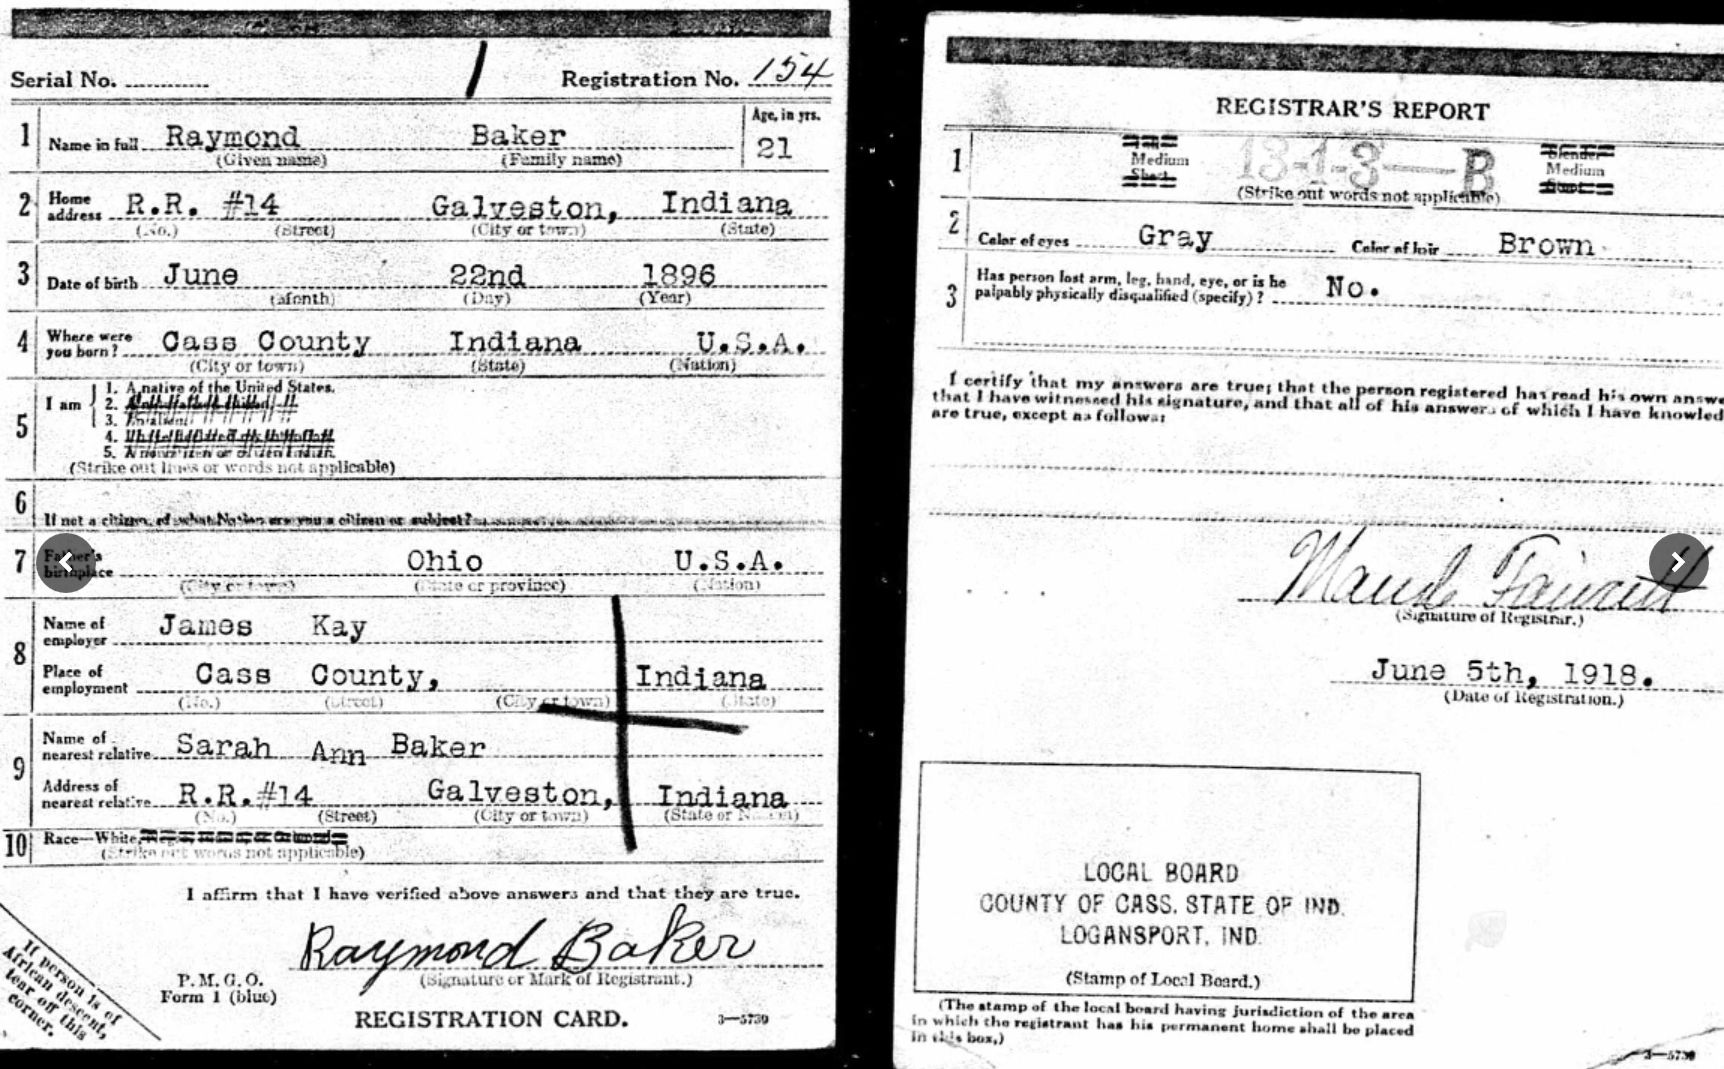 Serial No.
Registration No. 154
1 Name in full Raymond Baker
(Given name) (Family name)
Age, in yrs.
21
2 Home address R.R. #14 Galveston, Indiana
(No.) (Street) (City or town) (State)
3 Date of birth June 22nd 1896
(Month) (Day) (Year)
4 Where were you born? Cass County Indiana U.S.A.
(City or town) (State) (Nation)
5 I am
1. A native of the United States.
2.
3.
4.
5.
(Strike out lines or words not applicable)
6 If not a citizen, of what Nation are you a citizen or subject?
7 Father's birthplace Ohio U.S.A.
(City or town) (State or province) (Nation)
8 Name of employer James Kay
Place of employment Cass County, Indiana
(No.) (Street) (City or town) (State)
9 Name of nearest relative Sarah Ann Baker
Address of nearest relative R.R.#14 Galveston, Indiana
(No.) (Street) (City or town) (State or Nation)
10 Race—White,
(Strike out words not applicable)
I affirm that I have verified above answers and that they are true.
Raymond Baker
(Signature or Mark of Registrant.)
P. M. G. O.
Form 1 (blue)
REGISTRATION CARD. 3—5739
If person is of
African descent,
tear off this
corner.
REGISTRAR'S REPORT
1 Medium 13-1-3—B Medium
(Strike out words not applicable)
2 Color of eyes Gray Color of hair Brown
3 Has person lost arm, leg, hand, eye, or is he
palpably physically disqualified (specify)? No.
I certify that my answers are true; that the person registered has read his own answe
that I have witnessed his signature, and that all of his answers of which I have knowled
are true, except as follows:
Maude
(Signature of Registrar.)
June 5th, 1918.
(Date of Registration.)
LOCAL BOARD
COUNTY OF CASS, STATE OF IND.
LOGANSPORT, IND.
(Stamp of Local Board.)
(The stamp of the local board having jurisdiction of the area
in which the registrant has his permanent home shall be placed
in this box.)
3—5739